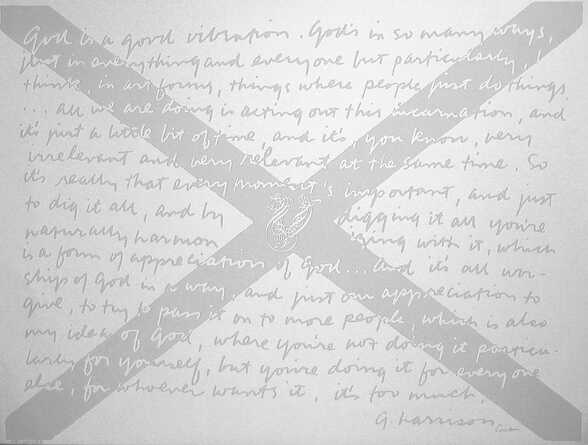 God is a good vibration. God's in so many ways,
just in everything and everyone but particularly, I
think, in art forms, things where people just do things
... all we are doing is acting out this incarnation, and
it's just a little bit of time, and it's, you know, very
irrelevant and very relevant at the same time. So
it's really that every moment's important, and just
to dig it all, and by digging it all you're
naturally harmonizing with it, which
is a form of appreciation of God... And it's all wor-
ships of God in a way, and just our appreciation to
give, to try to pass it on to more people, which is also
my idea of God, where you're not doing it particu-
larly for yourself, but you're doing it for everyone
else, for whoever wants it, it's too much.
G. Harrison